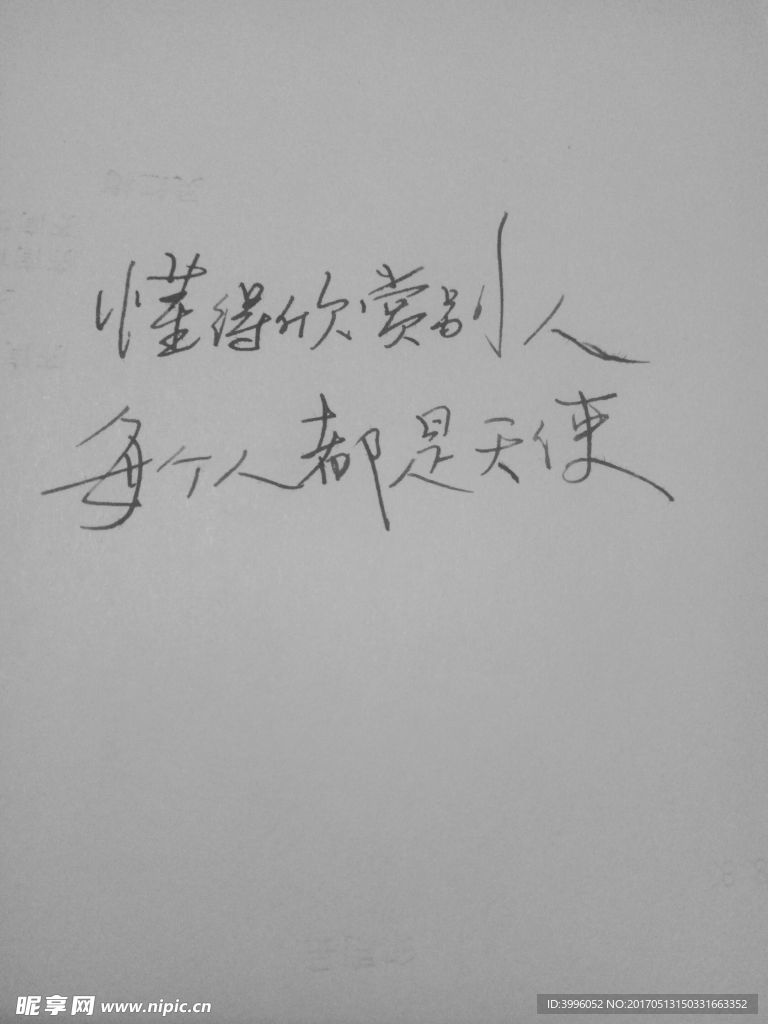 懂得欣赏别人
每个人都是天使
昵享网 www.nipic.cn
ID:3996052 NO:20170513150331663352